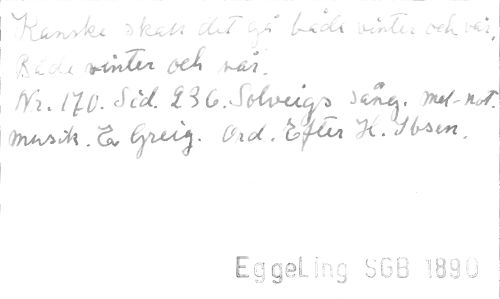 Kanske skall det gå både vinter och vår,
Både vinter och vår.
Nr. 170. Sid. 236. Solveigs sång. mel-not.
musik. E Grieg. Ord. Efter H. Ibsen.
EggeLing SGB 1890